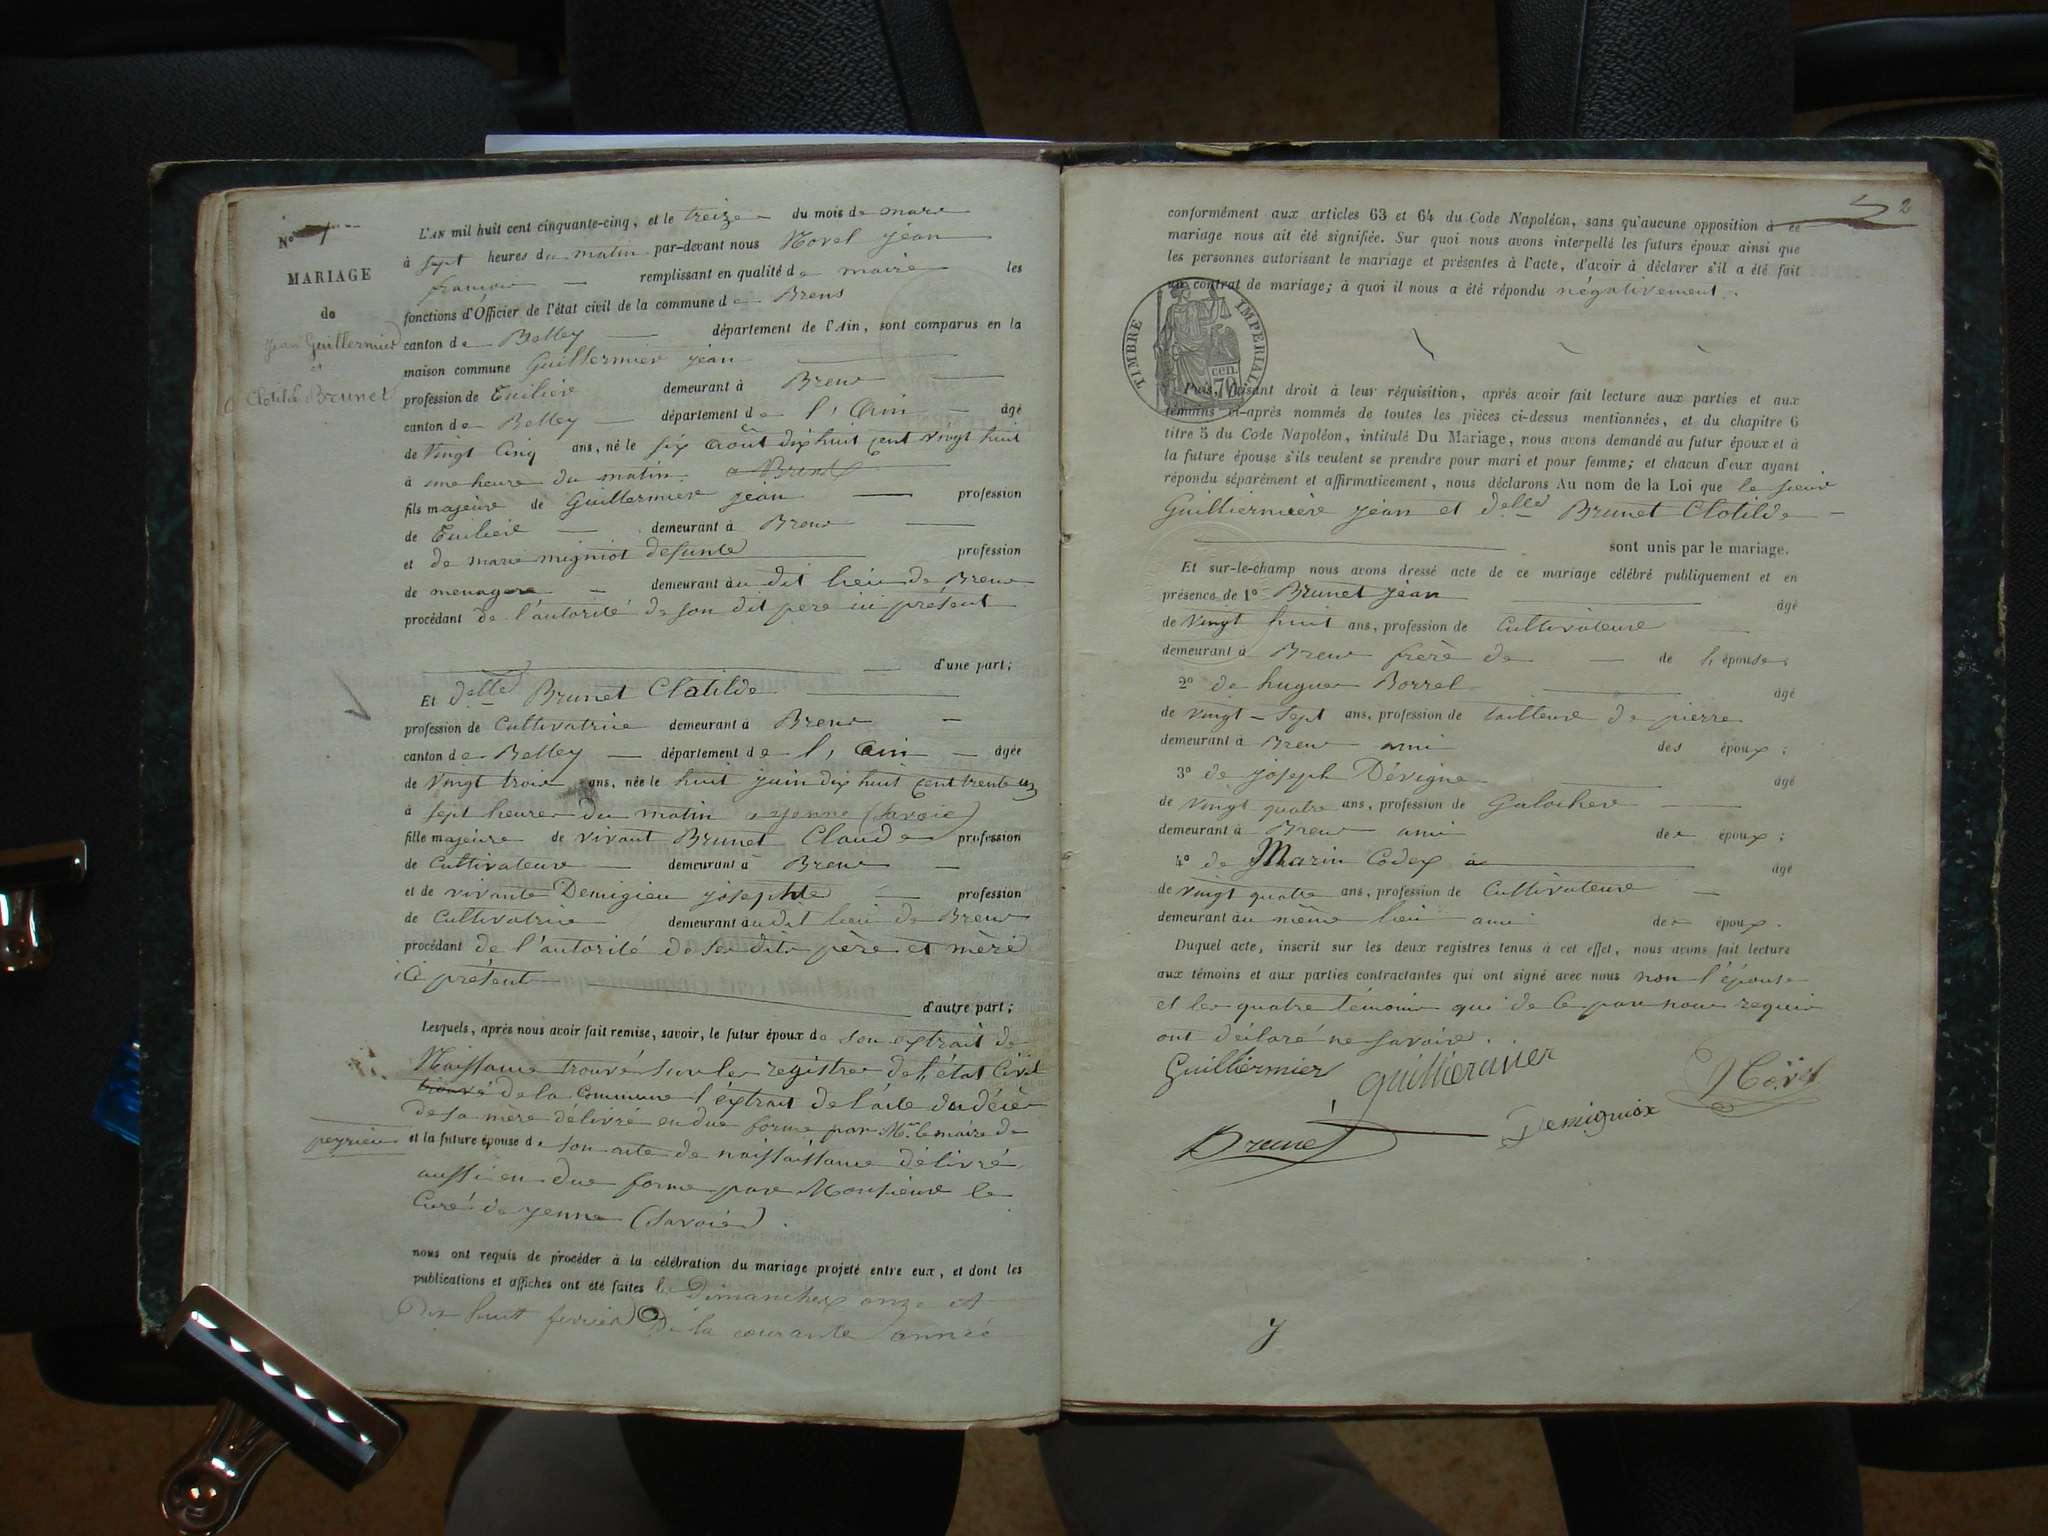 N° 1
MARIAGE
de
Jean Guillermier
et
Clotilde Brunet
L'AN mil huit cent cinquante-cinq, et le treize du mois de mars
à sept heures du matin par-devant nous Novel jean
françois remplissant en qualité de maire les
fonctions d'Officier de l'état civil de la commune de Brens
canton de Belley département de l'Ain, sont comparus en la
maison commune Guillermier jean
profession de Tuiliere demeurant à Brens
canton de Belley département de l'Ain âgé
de Vingt Cinq ans, né le six Août dix huit cent vingt huit
à une heure du matin a Brens
fils majeure de Guillermiere jean profession
de Tuiliere demeurant à Brens
et de marie migniot defunte profession
de menagere demeurant au dit lieu de Brens
procédant de l'autorité de son dit pere ici présent
d'une part;
Et delle Brunet Clatilde
profession de Cultivatrice demeurant à Brens
canton de Belley département de l'Ain âgée
de Vingt trois ans, née le huit juin dix huit cent trente un
à sept heures du matin a yenne (Savoie)
fille majeure de vivant Brunet Claude profession
de Cultivateure demeurant à Brens
et de vivante Demigieu josephte profession
de Cultivatrice demeurant au dit lieu de Brens
procédant de l'autorité de ses dits père et mère
ici présent
d'autre part;
Lesquels, après nous avoir fait remise, savoir, le futur époux de son extrait de
Naissance trouvé sur les registres de l'état Civil
trouvé de la Commune l'éxtrait de l'acte du décès
de sa mère délivré en due forme par Mr. le maire de
peyrieu
et la future épouse de son acte de naissaissance délivré
aussi en due forme par Monsieure le
Curé de yenne (Savoie).
nous ont requis de procéder à la célébration du mariage projeté entre eux, et dont les
publications et affiches ont été faites les Dimanches onze et
Dix huit fevrier De la courante année
2
conformément aux articles 63 et 64 du Code Napoléon, sans qu'aucune opposition à ce
mariage nous ait été signifiée. Sur quoi nous avons interpellé les futurs époux ainsi que
les personnes autorisant le mariage et présentes à l'acte, d'avoir à déclarer s'il a été fait
un contrat de mariage; à quoi il nous a été répondu négativement.
TIMBRE IMPERIAL
70 cen.
Puis, faisant droit à leur réquisition, après avoir fait lecture aux parties et aux
témoins ci-après nommés de toutes les pièces ci-dessus mentionnées, et du chapitre 6
titre 5 du Code Napoléon, intitulé Du Mariage, nous avons demandé au futur époux et à
la future épouse s'ils veulent se prendre pour mari et pour femme; et chacun d'eux ayant
répondu séparément et affirmativement, nous déclarons Au nom de la Loi que le sieur
Guilliermière jean et delle Brunet Clotilde
sont unis par le mariage.
Et sur-le-champ nous avons dressé acte de ce mariage célébré publiquement et en
présence de 1° Brunet jean âgé
de Vingt huit ans, profession de Cultivateure
demeurant à Brens frere de de l'épouse;
2° de hugues Borrel âgé
de Vingt-Sept ans, profession de tailleure de pierre
demeurant à Brens ami des époux;
3° de joseph Dévigne âgé
de Vingt quatre ans, profession de Galocher
demeurant à Brens ami des époux;
4° de Marin Codex âgé
de Vingt quatre ans, profession de Cultivateure
demeurant au même lieu ami des époux.
Duquel acte, inscrit sur les deux registres tenus à cet effet, nous avons fait lecture
aux témoins et aux parties contractantes qui ont signé avec nous non l'épouse
et les quatre témoins qui de ce par nous requis
ont déclaré ne savoire.
Guilliermier guilliermier Novel
Brunet Demigniox